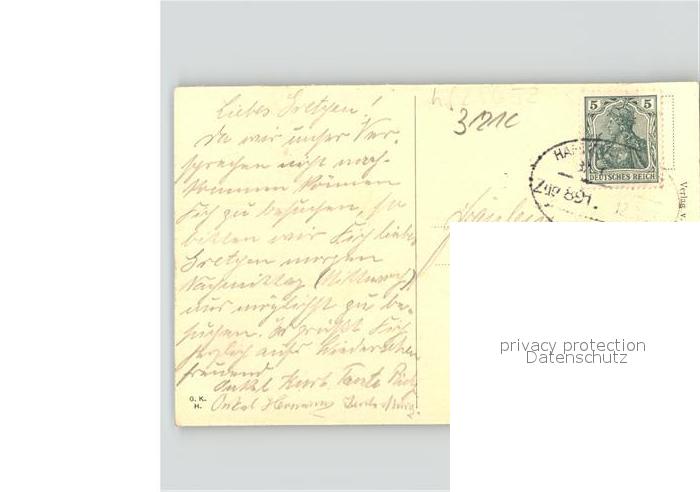 Liebes Gretchen!
Da wir unser Ver-
sprechen nicht nach-
kommen können
Dich zu besuchen, so
bitten wir Dich liebes
Gretchen morgen
Nachmittag (Mittwoch)
uns möglichst zu be-
suchen. Es grüßt Dich
herzlich aufs Wiedersehen
freuend
Onkel Kurt Tante
Onkel Hermann
G. K.
H.
3121C
Fräulein
5 5
DEUTSCHES REICH
Zug 891.
12
Verlag v.
privacy protection
Datenschutz